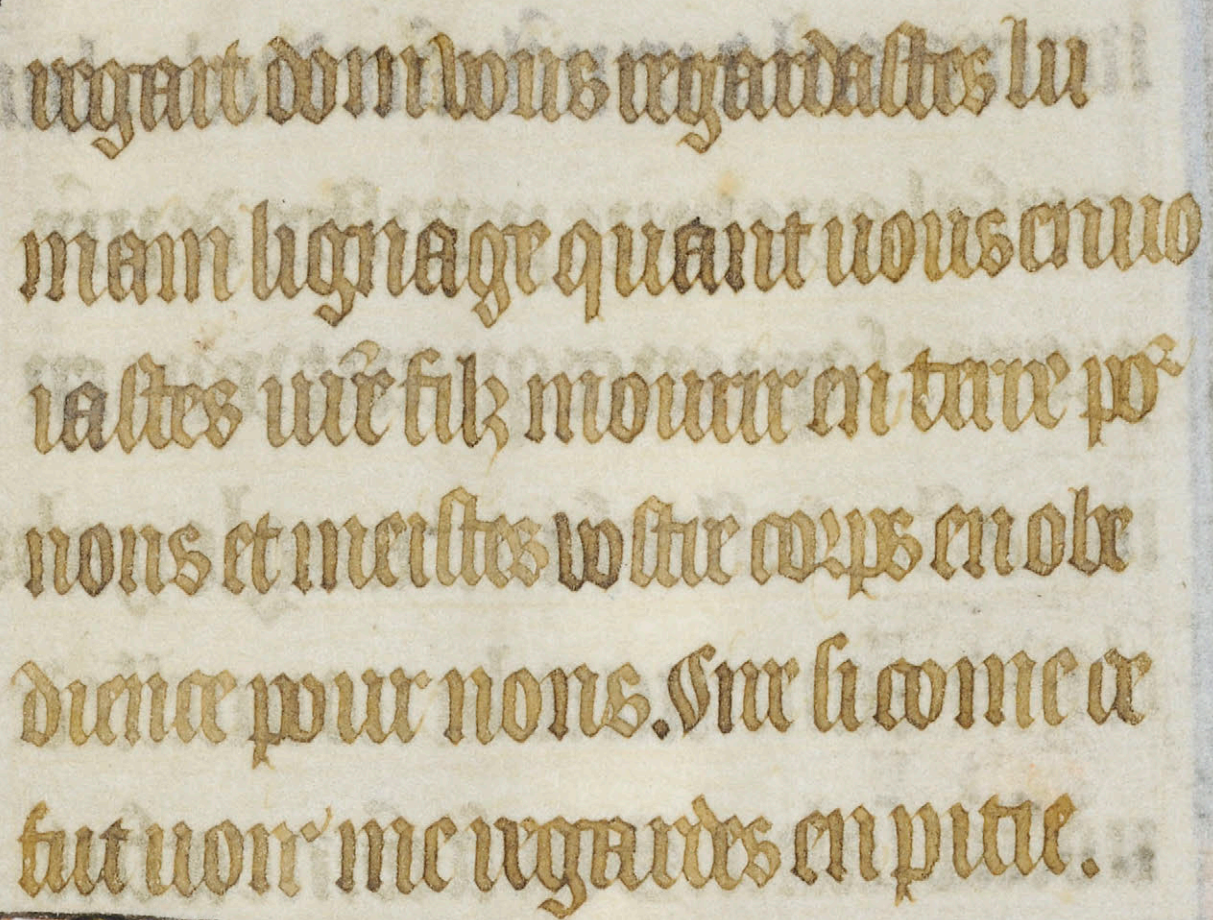 regart dont vous regardastes lu
main lignage quant uous enuo
iastes ur̃e filz mourir en terre poᷣ
nous et meistes vostre corps en obe
dience pour nous. Sire si come ce
fut uoir me regardes en pitie.